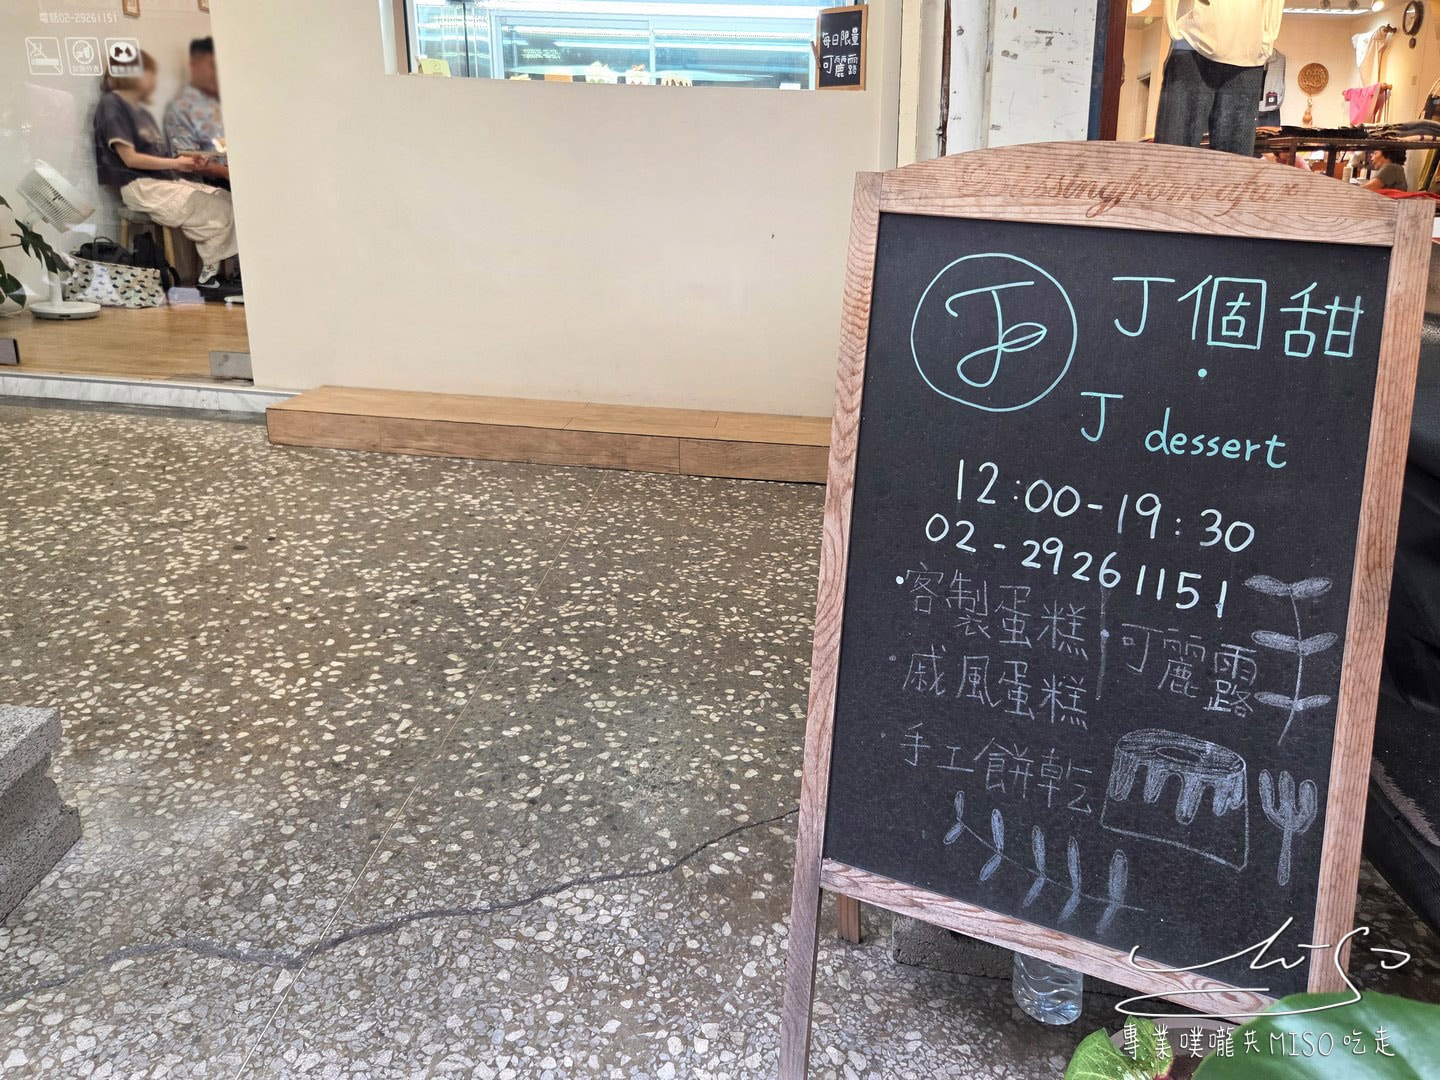 電話02-29261151
每日限量
可麗露
Blessing from cafux
J個甜
J dessert
12:00-19:30
02-29261151
客製蛋糕
可麗露
戚風蛋糕
手工餅乾
MiSo
專業噗嚨共MISO吃走